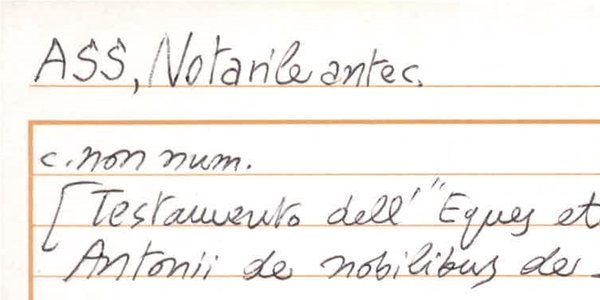 ASS, Notarile antec.
c. non num.
[Testamento dell' "Eques et
Antonii de nobilibus de